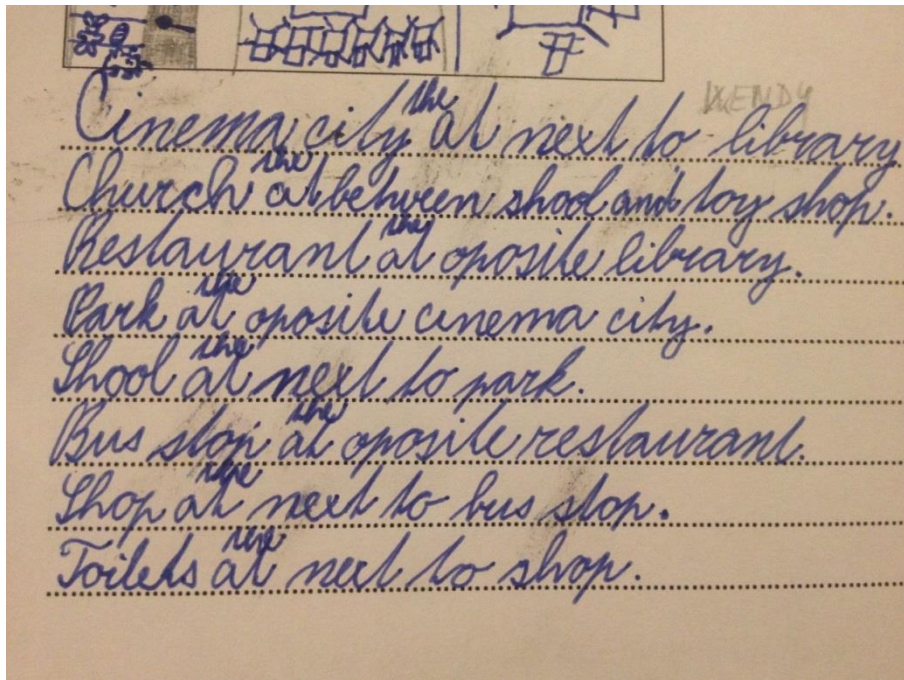 WENDY
Cinema city at the next to library
Church at the between shool and toy shop.
Restaurant at the oposite library.
Park at the oposite cinema city.
Shool at the next to park.
Bus stop at the oposite restaurant.
Shop at the next to bus stop.
Toilets at the next to shop.